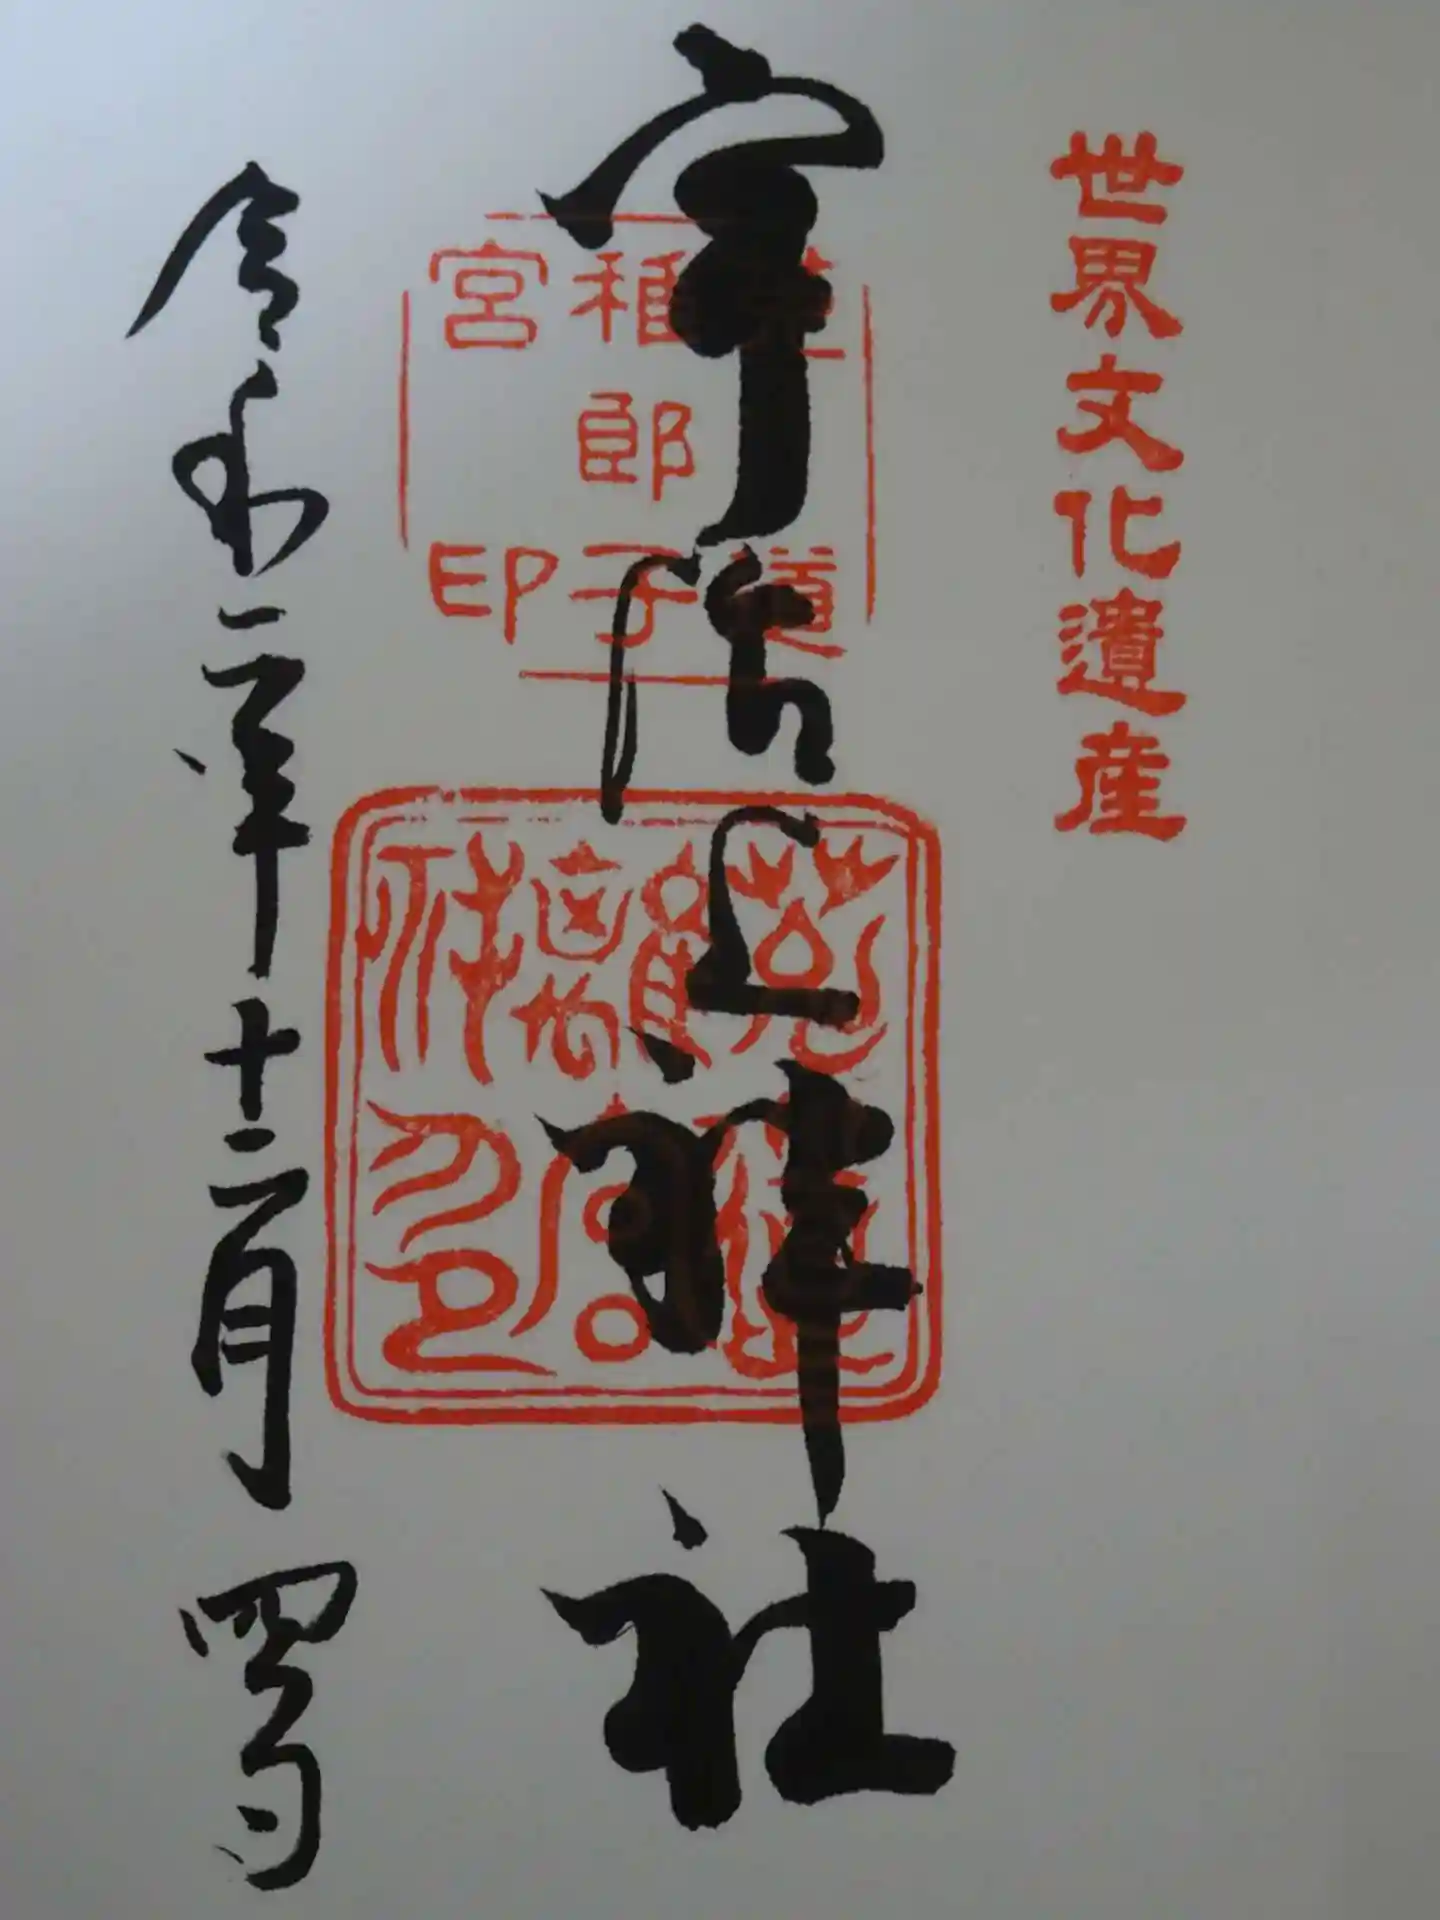 世界文化遺産
宇治上神社
菟道
稚郎子
宮印
令和二年十二月四日